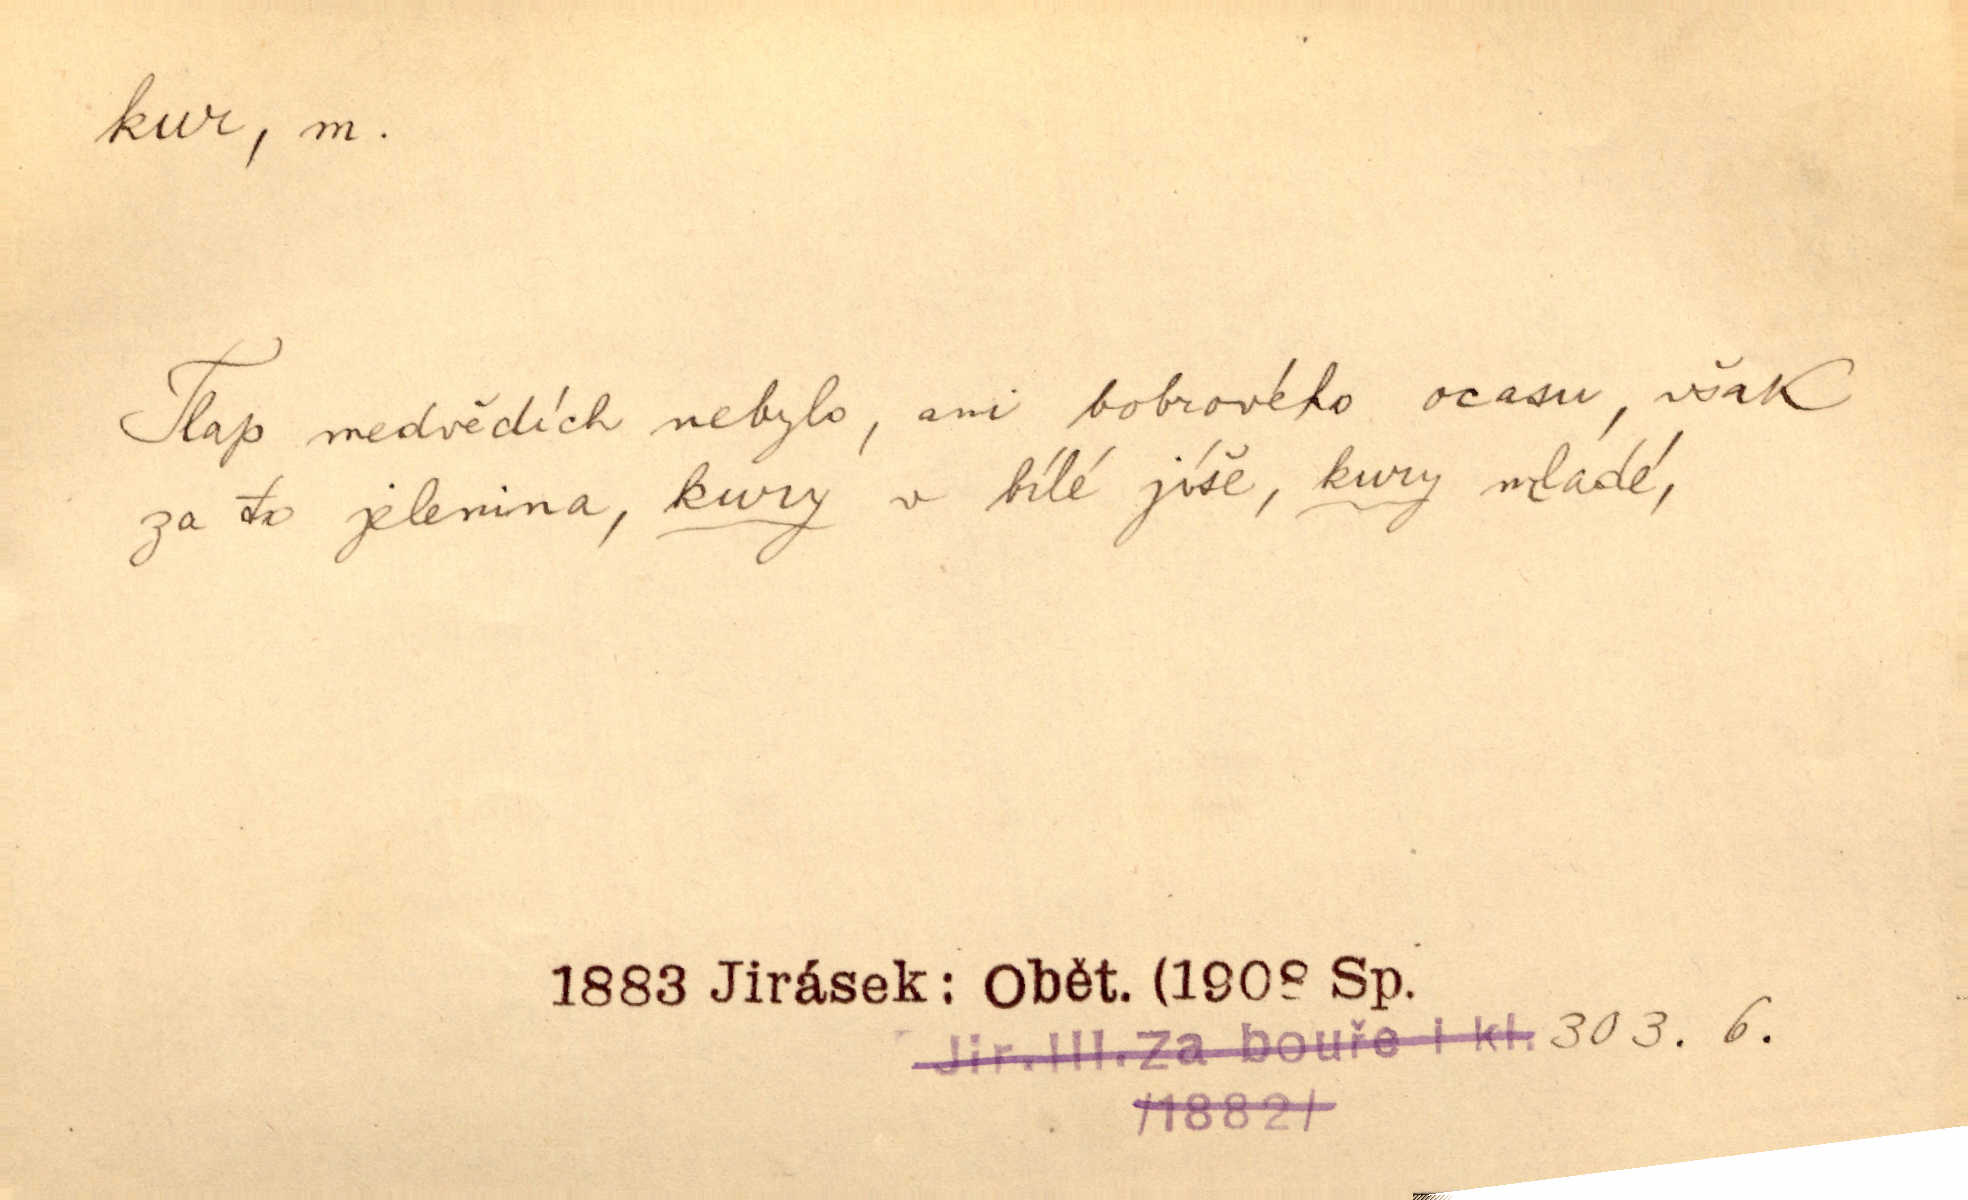 kur, m.
Tlap medvědích nebylo, ani bobrového ocasu, však
za to jelenina, kury v bílé jíše, kury mladé,
1883 Jirásek: Obět. (1908 Sp.
Jir.III.Za bouře i kl. 303. 6.
/1882/